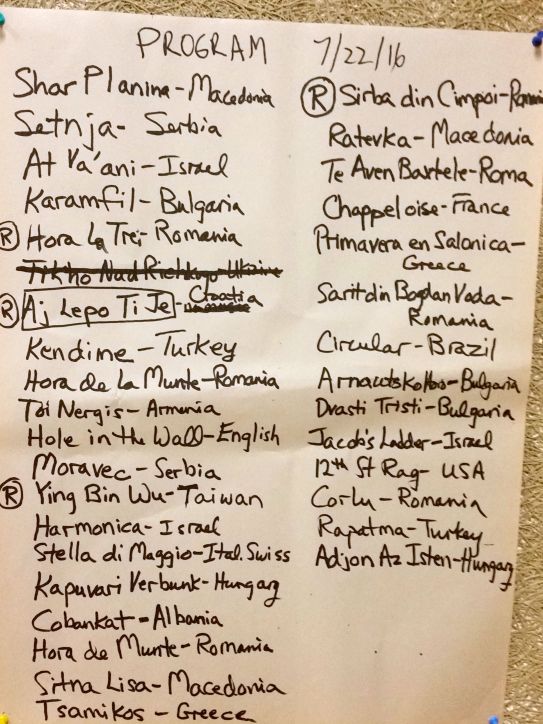 PROGRAM 7/22/16
Shar Planina - Macedonia
Setnja - Serbia
At Va'ani - Israel
Karamfil - Bulgaria
Ⓡ Hora La Trei - Romania
Tikho Nad Richkoyu - Ukraine
Ⓡ Aj Lepo Ti Je - Croatia
Kendime - Turkey
Hora de La Munte - Romania
Toi Nergis - Armenia
Hole in the Wall - English
Moravec - Serbia
Ⓡ Ying Bin Wu - Taiwan
Harmonica - Israel
Stella di Maggio - Ital. Swiss
Kapuvari Verbunk - Hungary
Cobankat - Albania
Hora de Munte - Romania
Sitna Lisa - Macedonia
Tsamikos - Greece
Ⓡ Sirba din Cimpoi - Romania
Ratevka - Macedonia
Te Aven Baxtele - Roma
Chappeloise - France
Primavera en Salonica -
Greece
Sarit din Bogdan Voda -
Romania
Circular - Brazil
Arnautsko Horo - Bulgaria
Drasti Tristi - Bulgaria
Jacob's Ladder - Israel
12th St Rag - USA
Corlu - Romania
Rapatma - Turkey
Adjon Az Isten - Hungary